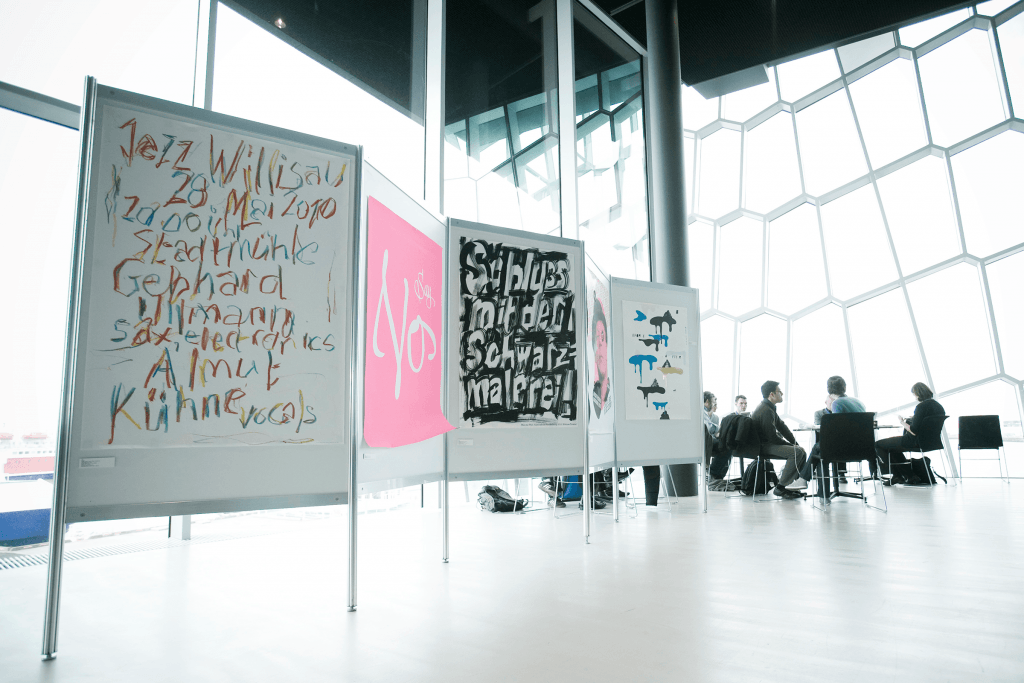 Jazz Willisau
28 Mai 2010
20.00 h
Stadtmühle
Gebhard
Ullmann
sax, electronics
Almut
Kühne vocals
Nos
Schluss
mit der
Schwarz-
malerei!